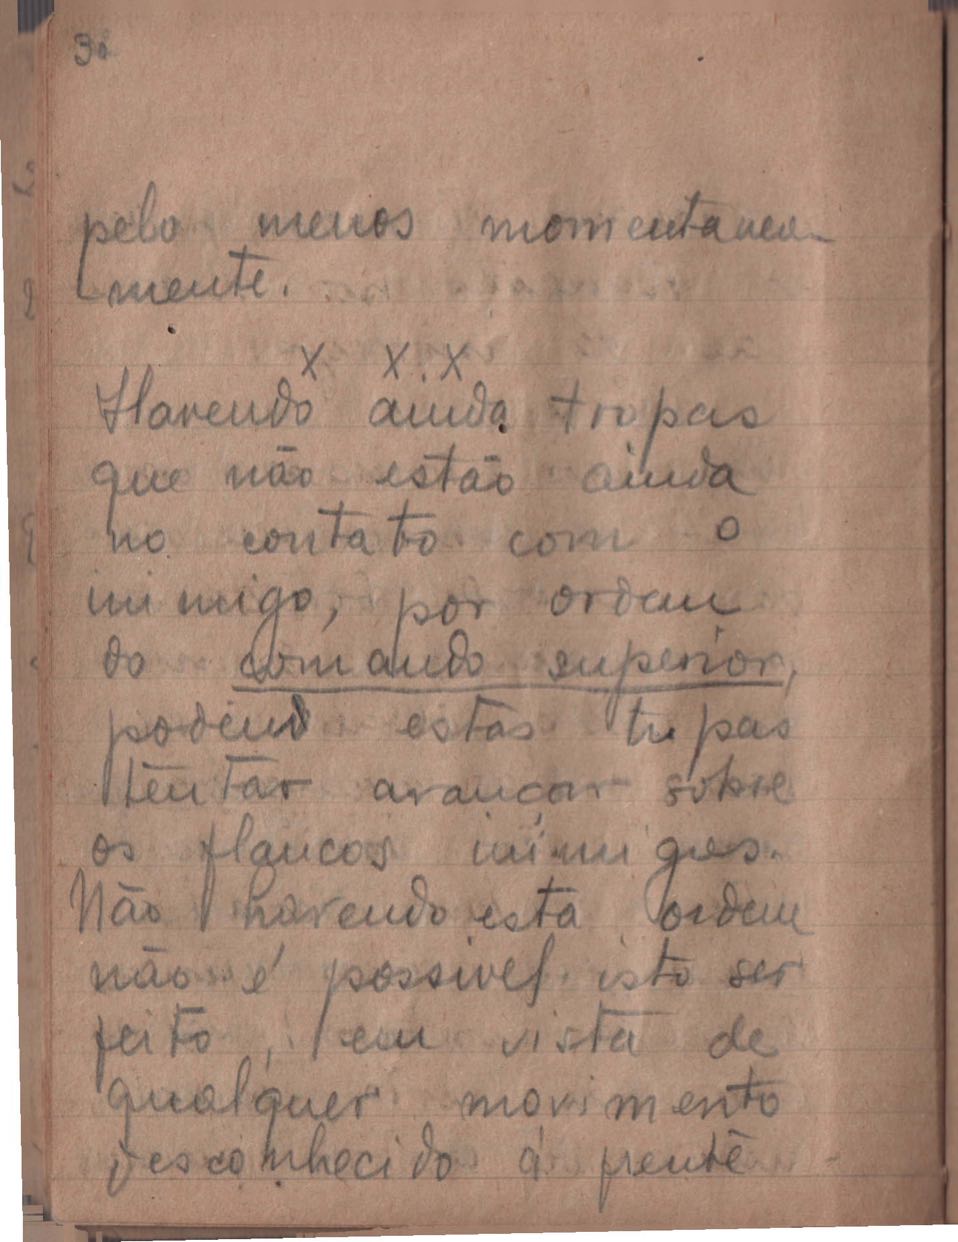 30
pelo menos momentanea-
mente.
X X X
Havendo ainda tropas
que não estão ainda
no contato com o
inimigo, por ordem
do comando superior,
podem estas tropas
tentar avançar sobre
os flancos inimigos.
Não havendo esta ordem
não é possivel isto ser
feito, em vista de
qualquer movimento
desconhecido á frente